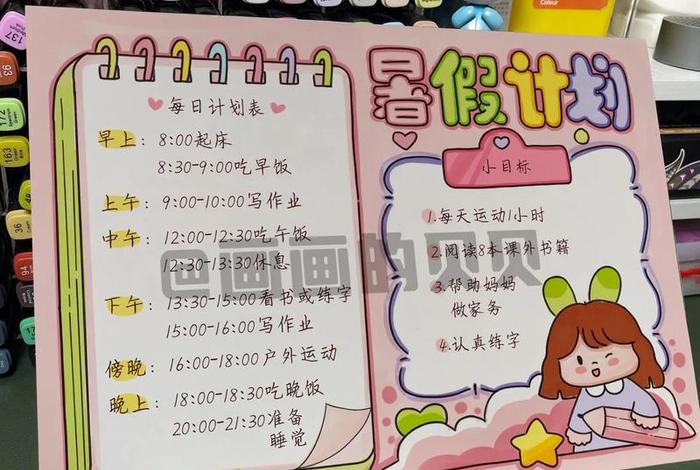 暑假计划
每日计划表
早上：8:00起床
8:30-9:00吃早饭
上午：9:00-10:00写作业
中午：12:00-12:30吃午饭
12:30-13:30休息
下午：13:30-15:00看书或练字
15:00-16:00写作业
傍晚：16:00-18:00户外运动
晚上：18:00-18:30吃晚饭
20:00-21:30准备
睡觉
小目标
1.每天运动1小时
2.阅读8本课外书籍
3.帮助妈妈
做家务
4.认真练字
@画画的贝贝
137
93
172
163
36
94
Colour